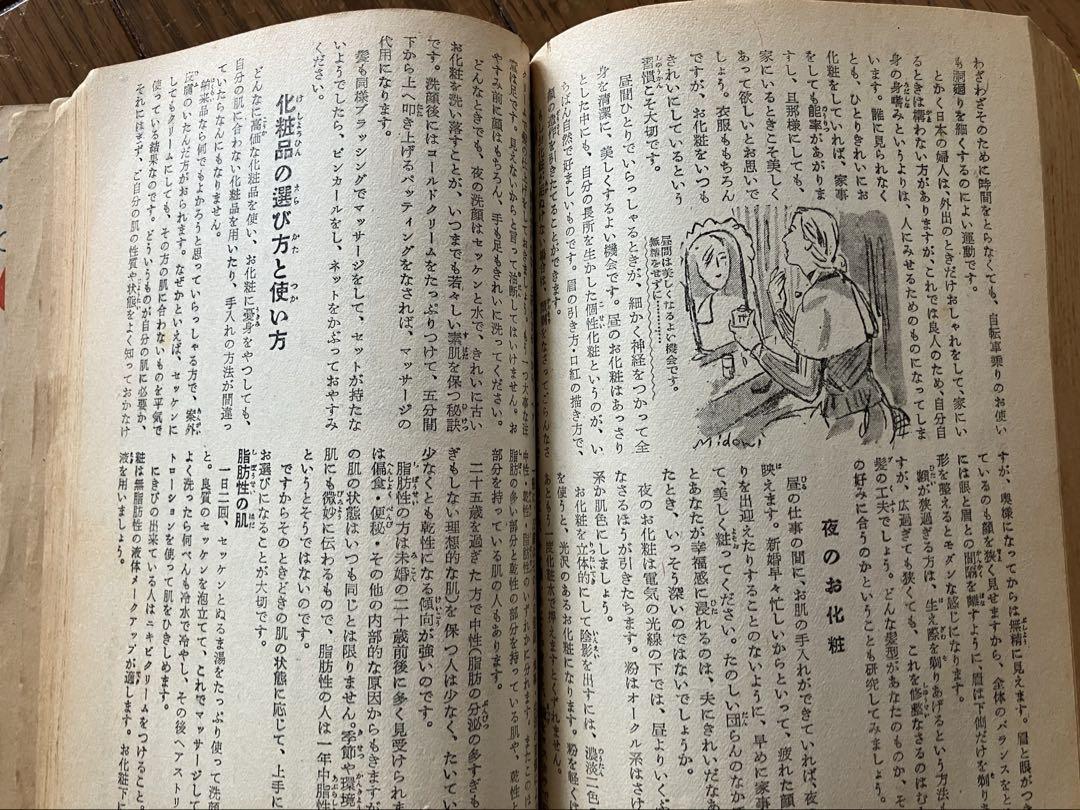 わざわざそのために時間をとらなくても、自転車乗りのお使い
も洞廻りを細くするのによい運動です。
とかく日本の婦人は、外出のときだけおしゃれをして、家にい
るときは構わない方がありますが、これでは良人のため、自分自
身の身嗜みというよりは、人にみせるためのものになってしま
います。誰に見られなく
とも、ひとりきれいにお
化粧をしていれば、家事
をしても能率があがりま
すし、旦那様にしても、
家にいるときこそ美しく
あって欲しいとお思いで
しょう。衣服ももちろん
ですが、お化粧をいつも
きれいにしているという
習慣こそ大切です。
昼間は美しくなるよい機会です。
無精をせずに…………
Midori
昼間ひとりでいらっしゃるときが、細かく神経をつかって全
身を清潔に、美しくするよい機会です。昼のお化粧はあっさり
とした中にも、自分の長所を生かした個性化粧というのが、い
ちばん自然で好ましいものです。眉の引き方・口紅の描き方で、
すが、奥様になってからは無精に見えます。眉と眼がつ
ているのも顔を狭く見せますから、全体のバランスをと
には眼と眉との間隔を離すように、眉は下側だけを剃り
形を整えるとモダンな感じになります。
額が狭過ぎる方は、生え際を剃りあげるという方法も
すが、広過ぎても狭くても、これを修整なさるのはむ
髪の工夫でしょう。どんな髪型があなたのものか、そ
の好みに合うのかということも研究してみましょう。
夜のお化粧
昼の仕事の間に、お肌の手入れができていれば、夜
映えます。新婚早々忙しいからといって、疲れた顔
りを出迎えたりすることのないように、早めに家事
て、美しく粧ってください。たのしい団らんのなか
とあなたが幸福感に浸れるのは、夫にきれいだなあ
たとき、いっそう深いのではないでしょうか。
夜のお化粧は電気の光線の下では、昼よりいくぶ
なさるほうが引きたちます。粉はオークル系はさけ
系か肌色にしましょう。
お化粧を立体的にして陰影を出すには、濃淡二色の
を使うと、光沢のあるお化粧になります。粉を軽く
あともう一度化粧水で押えますとくずれません。
意は足です。見えないからと言って油断してはいけません。お
やすみ前に顔はもちろん、手も足もきれいに洗ってください。
どんなときでも、夜の洗顔はセッケンと水で、きれいに古い
お化粧を洗い落すことが、いつまでも若々しい素肌を保つ秘訣
です。洗顔後にはコールドクリームをたっぷりつけて、五分間
下から上へ叩き上げるパッティングをなされば、マッサージの
代用になります。
髪も同様ブラッシングでマッサージをして、セットが持たな
いようでしたら、ピンカールをし、ネットをかぶっておやすみ
ください。
化粧品の選び方と使い方
どんなに高価な化粧品を使い、お化粧に憂身をやつしても、
自分の肌に合わない化粧品を用いたり、手入れの方法が間違っ
ていたらなんにもなりません。
舶来品なら何でもよかろうと思っていらっしゃる方で、案外
皮膚のいたんだ方がおられます。なぜかといえば、セッケンに
してもクリームにしても、その方の肌に合わないものを平気で
使っている結果なのです。どういうものが自分の肌に必要か、
それにはまず、ご自分の肌の性質、状態をよく知っておかなけ
中性・乾性・脂肪性のいずれかに分れます。またこのほ
脂肪の多い部分と乾性の部分を持っている肌や、乾性と
部分を持っている肌の人もあります。
二十五歳を過ぎた方で中性(脂肪の分泌の多すぎも
ぎもしない理想的な肌)を保つ人は少なく、たいてい
少なくとも乾性になる傾向が強いのです。
脂肪性の方は未婚の二十歳前後に多く見受けられま
は偏食・便秘・その他の内部的な原因からもきますが
の肌の状態はいつも同じとは限りません。季節や環境
肌にも微妙に伝わるもので、脂肪性の人は一年中脂肪性
というとそうではないのです。
ですからそのときどきの肌の状態に応じて、上手に
お選びになることが大切です。
脂肪性の肌
一日二回、セッケンとぬるま湯をたっぷり使って洗顔
と。良質のセッケンを泡立てて、これでマッサージして
よく洗ったら何べんも冷水で冷やし、その後へアストリ
トローションを使って肌をひきしめます。
にきびの出来ている人はニキビクリームをつけること。
粧は無脂肪性の液体メークアップが適します。お化粧下に
液を用いましょう。